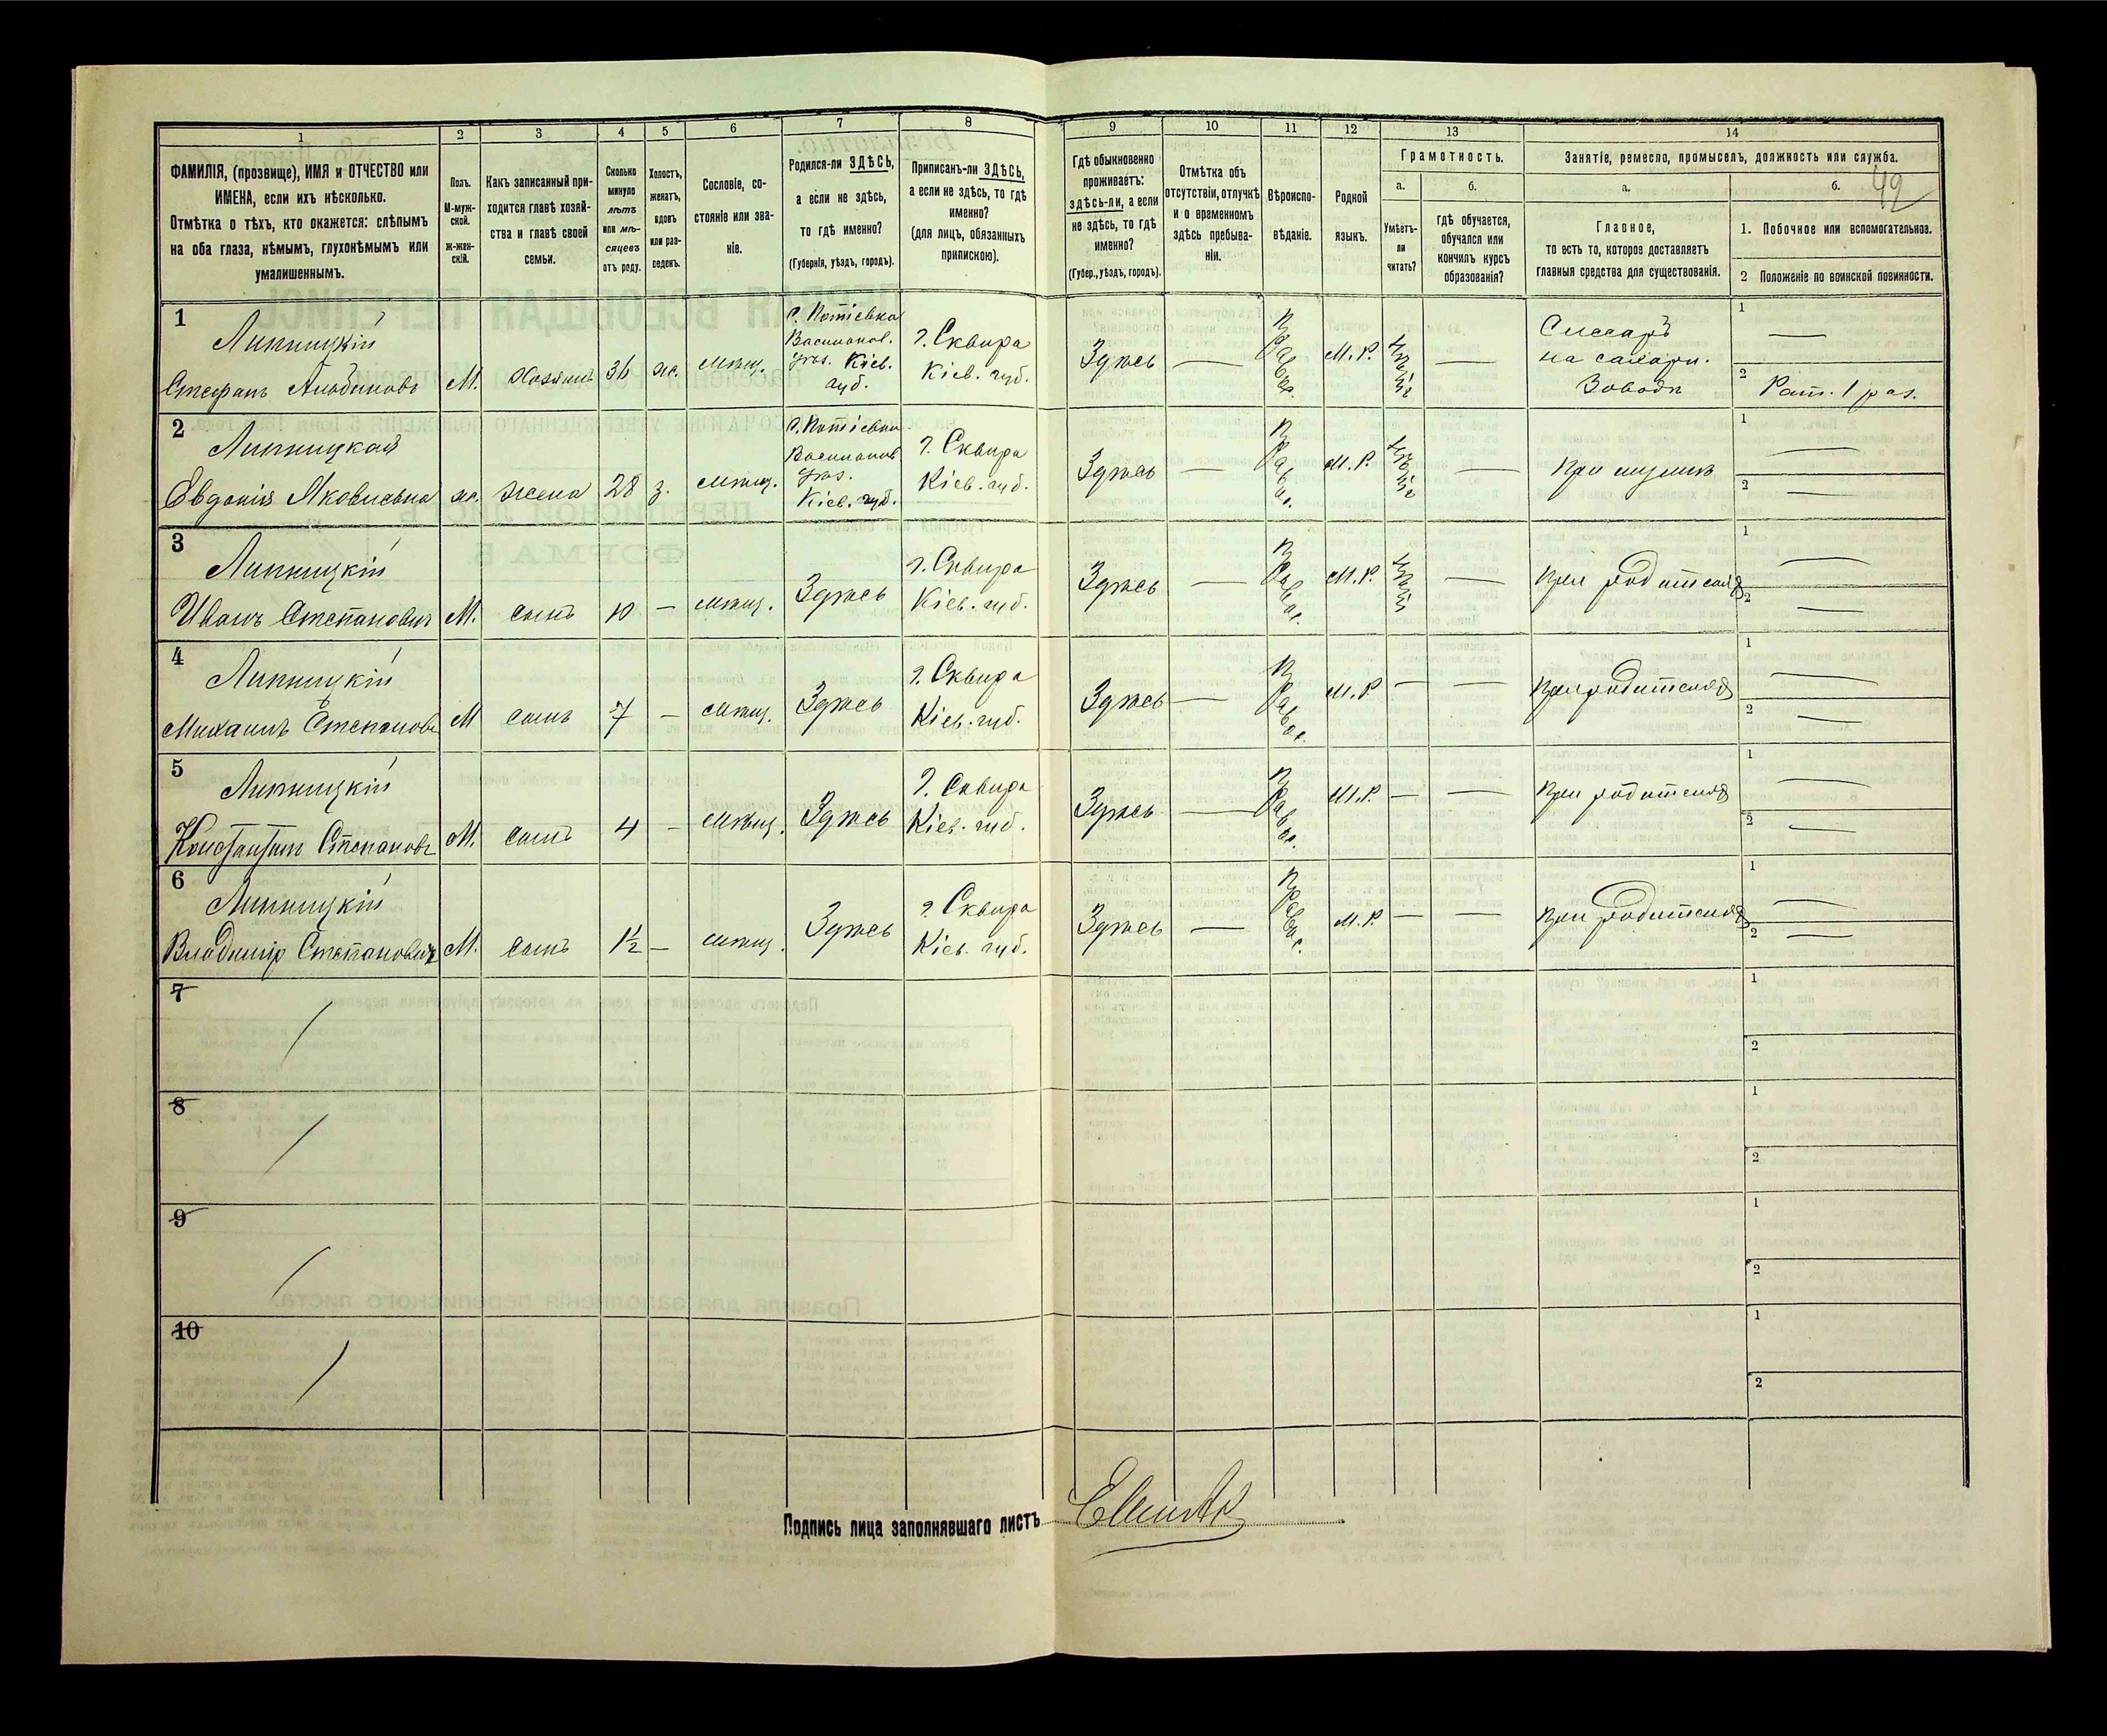 1
ФАМИЛІЯ, (прозвище), ИМЯ и ОТЧЕСТВО или
ИМЕНА, если ихъ нѣсколько.
Отмѣтка о тѣхъ, кто окажется: слѣпымъ
на оба глаза, нѣмымъ, глухонѣмымъ или
умалишеннымъ.
2
Полъ.
М-муж-
ской.
ж-жен-
скій.
3
Какъ записанный при-
ходится главѣ хозяй-
ства и главѣ своей
семьи.
4
Сколько
минуло
лѣтъ
или мѣ-
сяцевъ
отъ роду.
5
Холостъ,
женатъ,
вдовъ
или раз-
веденъ.
6
Сословіе, со-
стояніе или зва-
ніе.
7
Родился-ли ЗДѢСЬ,
а если не здѣсь,
то гдѣ именно?
(Губернія, уѣздъ, городъ).
8
Приписанъ-ли ЗДѢСЬ,
а если не здѣсь, то гдѣ
именно?
(для лицъ, обязанныхъ
припискою).
9
Гдѣ обыкновенно
проживаетъ:
здѣсь-ли, а если
не здѣсь, то гдѣ
именно?
(Губер., уѣздъ, городъ).
10
Отмѣтка объ
отсутствіи, отлучкѣ
и о временномъ
здѣсь пребыва-
ніи.
11
Вѣроиспо-
вѣданіе.
12
Родной
языкъ.
13
Грамотность.
а.
Умѣетъ-
ли
читать?
б.
гдѣ обучается,
обучался или
кончилъ курсъ
образованія?
14
Занятіе, ремесло, промыселъ, должность или служба.
а.
Главное,
то есть то, которое доставляетъ
главныя средства для существованія.
б.
1. Побочное или вспомогательное.
2 Положеніе по воинской повинности.
1
Липницкій
Стефанъ
М.
Хозяинъ
36
жен.
мѣщ.
с. Потіевка
Василков.
уѣз. Кіев.
губ.
г. Сквира
Кіев. губ.
Здѣсь
—
Правос.
М. Р.
—
Слесарь
на сахарн.
Заводѣ
1
—
2
Рат. 1 раз.
2
Липницкая
Евдокія Яковлевна
ж.
жена
28
з.
мѣщ.
с. Потіевка
Василков
уѣз.
Кіев. губ.
г. Сквира
Кіев. губ.
Здѣсь
—
Правос.
М. Р.
—
При мужѣ
1
—
2
—
3
Липницкій
Иванъ Степановъ
М.
сынъ
10
—
мѣщ.
Здѣсь
г. Сквира
Кіев. губ.
Здѣсь
—
Правос.
М. Р.
—
При родителяхъ
1
—
2
—
4
Липницкій
Михаилъ Степановъ
М
сынъ
7
—
мѣщ.
Здѣсь
г. Сквира
Кіев. губ.
Здѣсь
—
Правос.
М. Р.
—
—
При родителяхъ
1
—
2
—
5
Липницкій
Константинъ Степановъ
М.
сынъ
4
—
мѣщ.
Здѣсь
г. Сквира
Кіев. губ.
Здѣсь
—
Правос.
М. Р.
—
—
При родителяхъ
1
—
2
—
6
Липницкій
Владиміръ Степановичъ
М.
сынъ
1½
—
мѣщ.
Здѣсь
г. Сквира
Кіев. губ.
Здѣсь
—
Правос.
М. Р.
—
—
При родителяхъ
1
—
2
—
7
1
2
8
1
2
9
1
2
10
1
2
Подпись лица заполнявшаго листъ